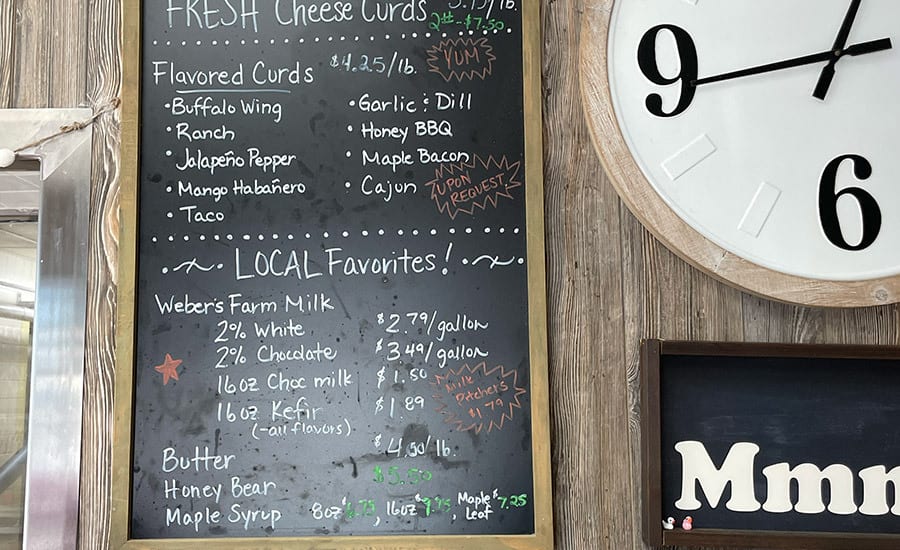 FRESH Cheese Curds
/lb.
2# - $7.50
Flavored Curds $4.25/lb.
YUM
• Buffalo Wing
• Ranch
• Jalapeño Pepper
• Mango Habañero
• Taco
• Garlic & Dill
• Honey BBQ
• Maple Bacon
• Cajun
UPON
REQUEST
LOCAL Favorites!
Weber's Farm Milk
2% White $2.79/gallon
2% Chocolate $3.49/gallon
16oz Choc milk $1.50
16oz Kefir $1.89
(-all flavors)
Milk
Pitchers
$1.79
Butter $4.50/lb.
Honey Bear $5.50
Maple Syrup 8oz $6.75, 16oz $9.75, Maple Leaf $7.25
9
6
Mmm